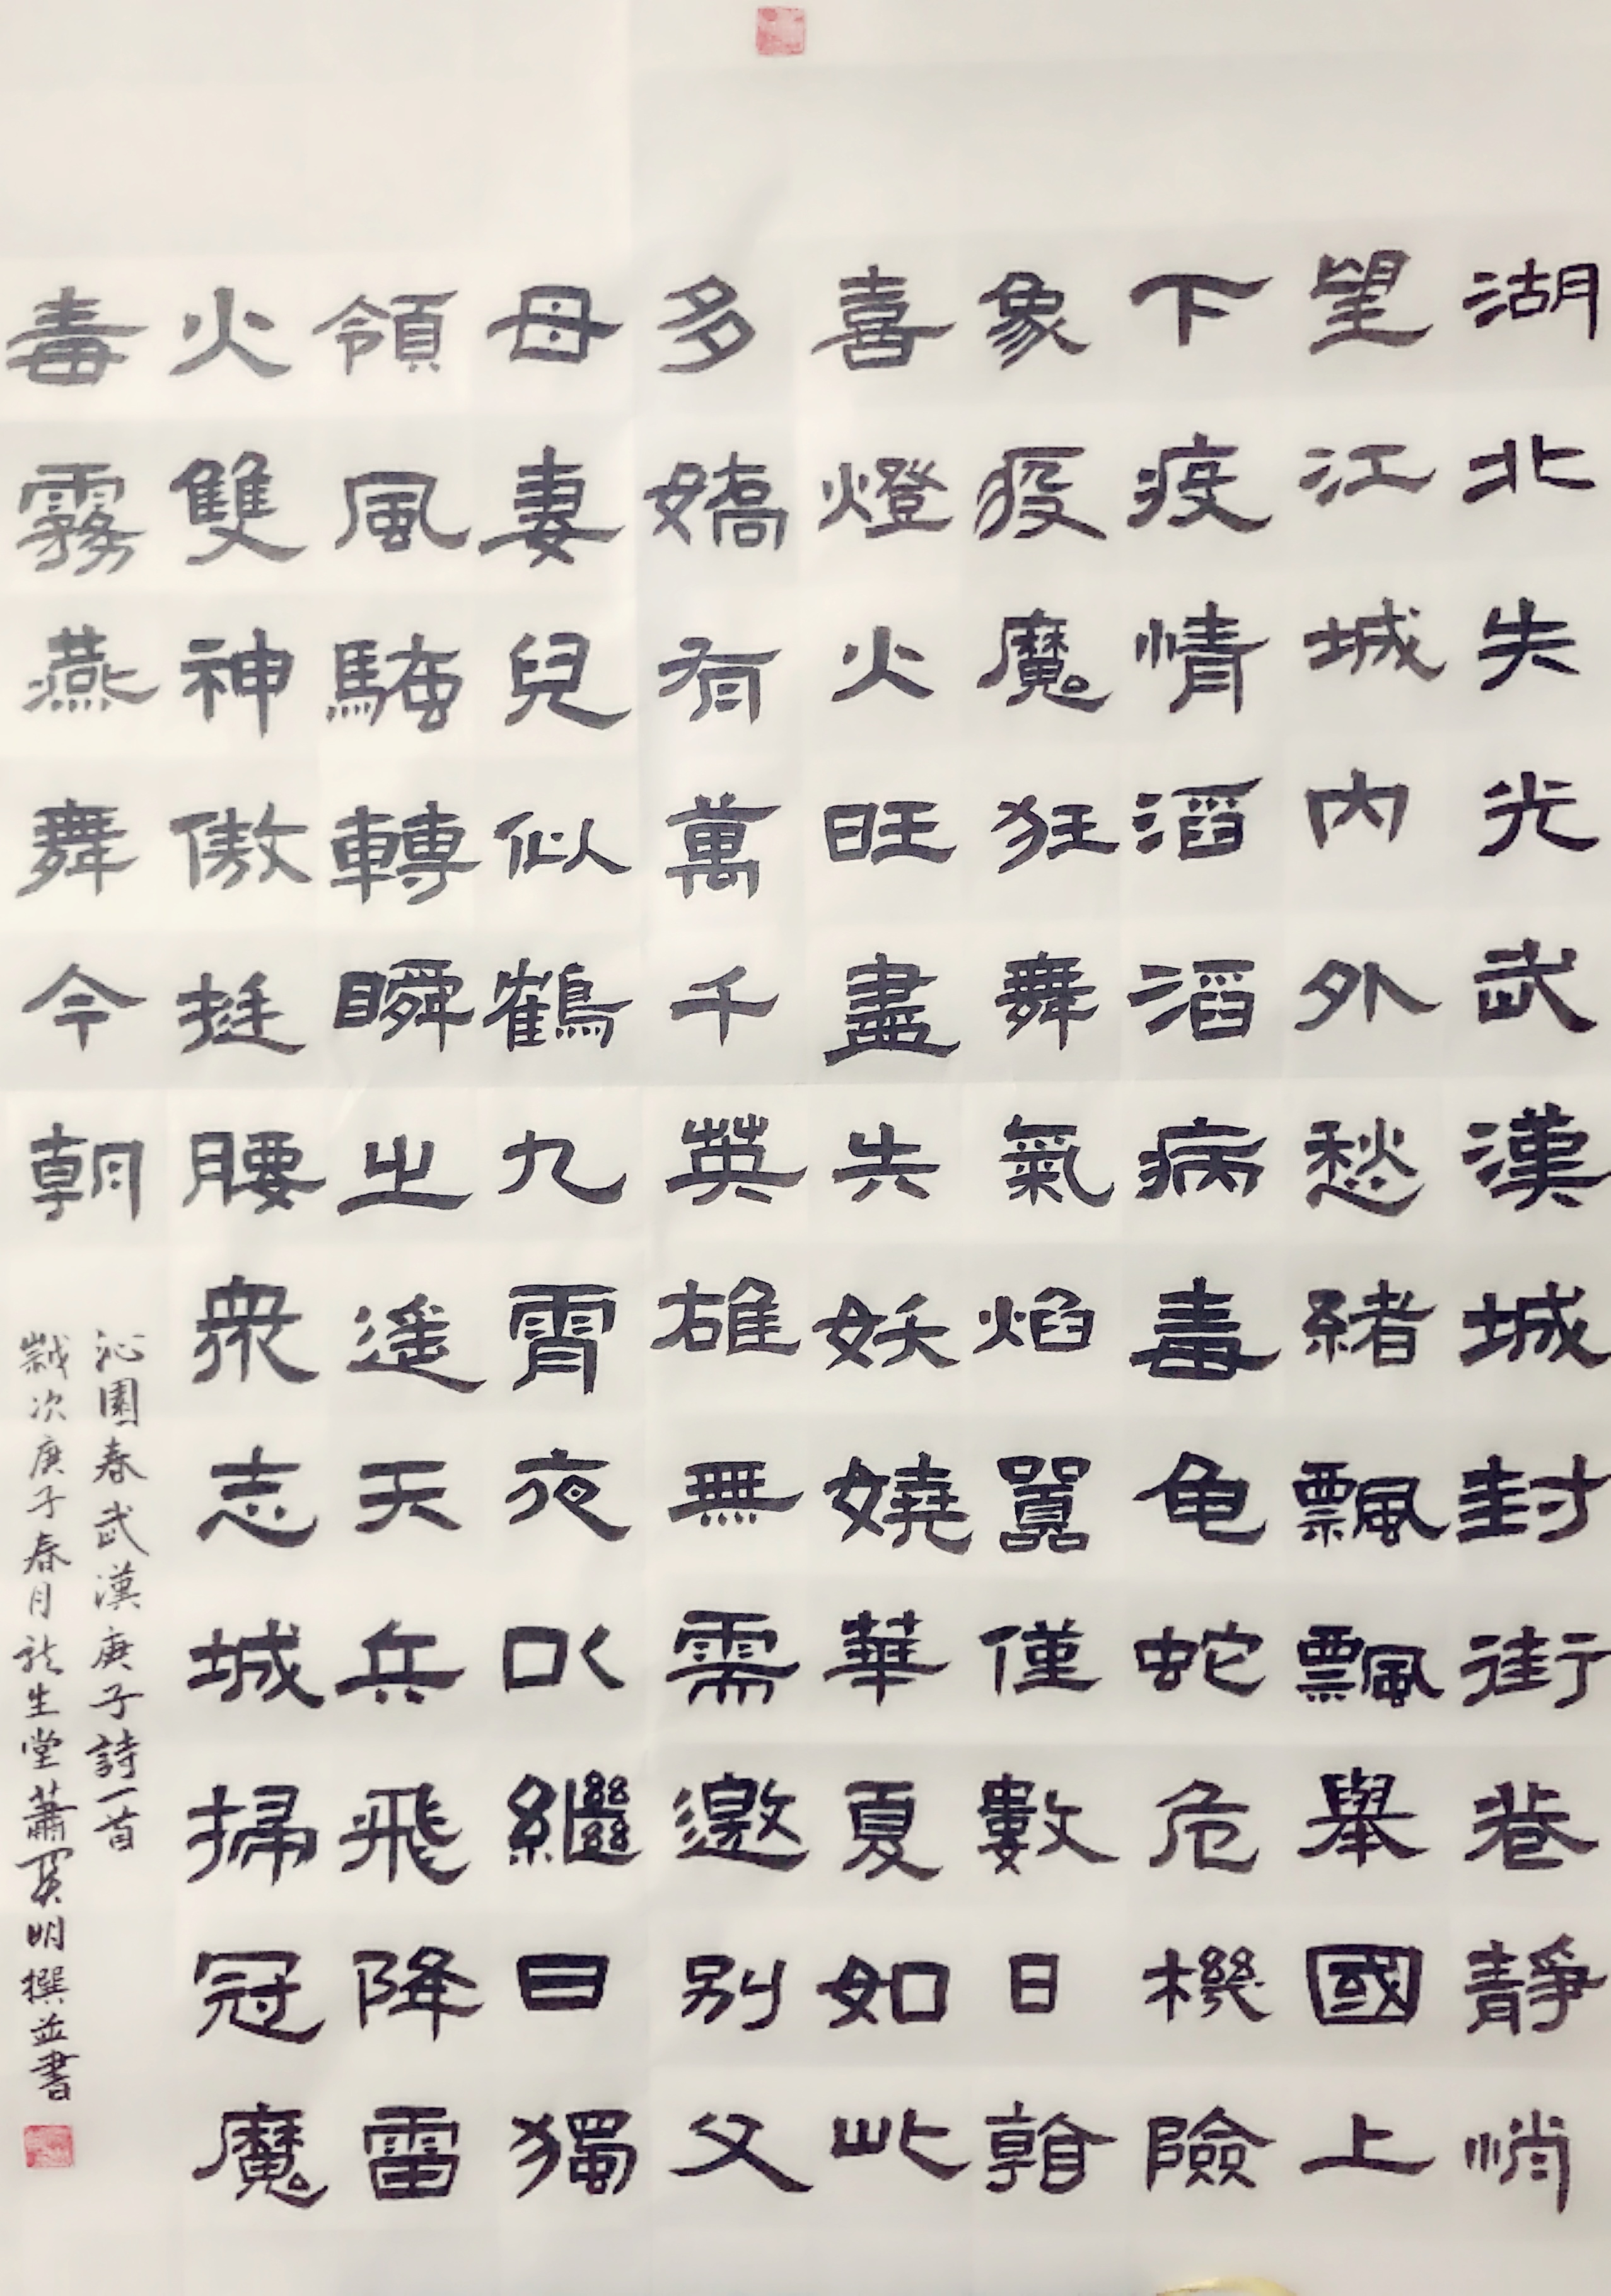 湖北失光武漢城封街巷靜悄
望江城內外愁緒飄飄舉國上
下疫情滔滔病毒龟蛇危機險
象疫魔狂舞氣焰囂僅數日
喜燈火旺盡失妖嬈華夏如此
多嬌有萬千英雄無需邀別父
母妻兒似鶴九霄夜以繼日獨
領風騷轉瞬之遥天兵飛降雷
火雙神傲挺腰衆志城掃冠魔
毒霧燕舞今朝
沁園春武漢庚子詩一首
歲次庚子春月 生堂蕭 明撰並書